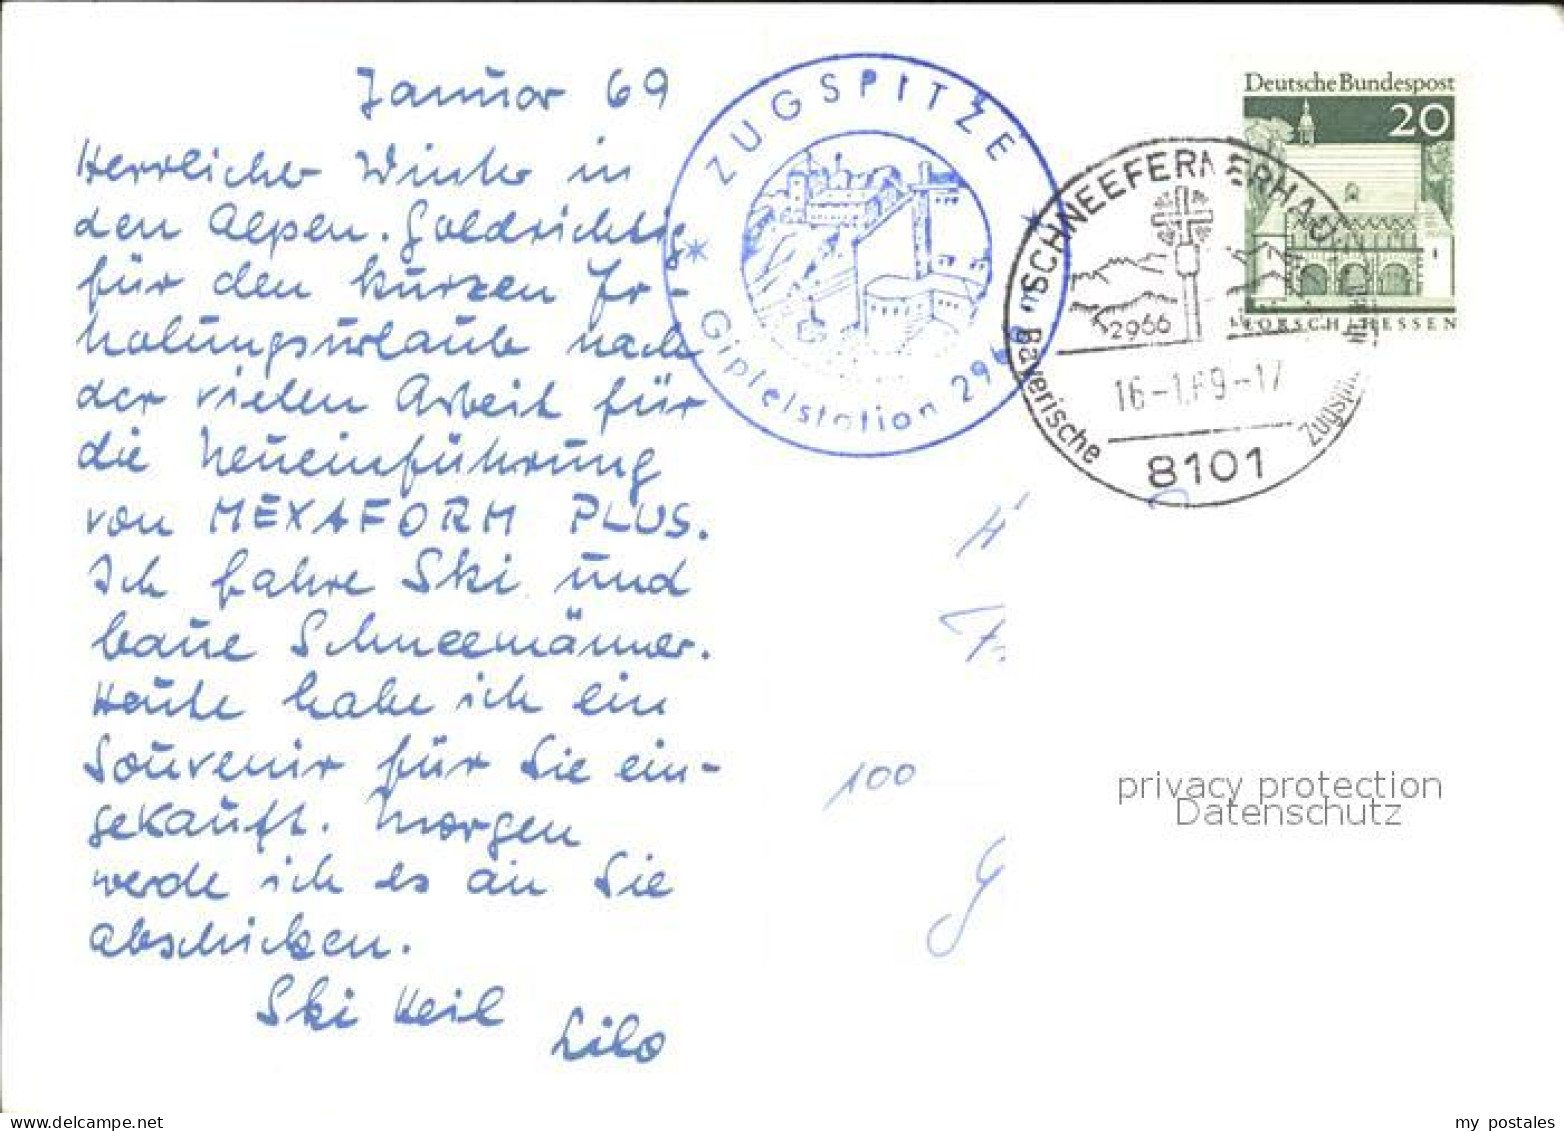 Januar 69
Herrlicher Winter in
den Alpen. Goldrichtig
für den kurzen Er-
holungsurlaub nach
der vielen Arbeit für
die Neueinführung
von MEXAFORM PLUS.
Ich fahre Ski und
baue Schneemänner.
Heute habe ich ein
Souvenir für Sie ein-
gekauft. Morgen
werde ich es an Sie
abschicken.
Ski Heil
Lilo
ZUGSPITZE
Gipfelstation 296
SCHNEEFERNERHAUS
2966
16-1.69-17
Bayerische
Zugspitz
8101
Deutsche Bundespost
20
LORSCH/HESSEN
100
privacy protection
Datenschutz
my postales